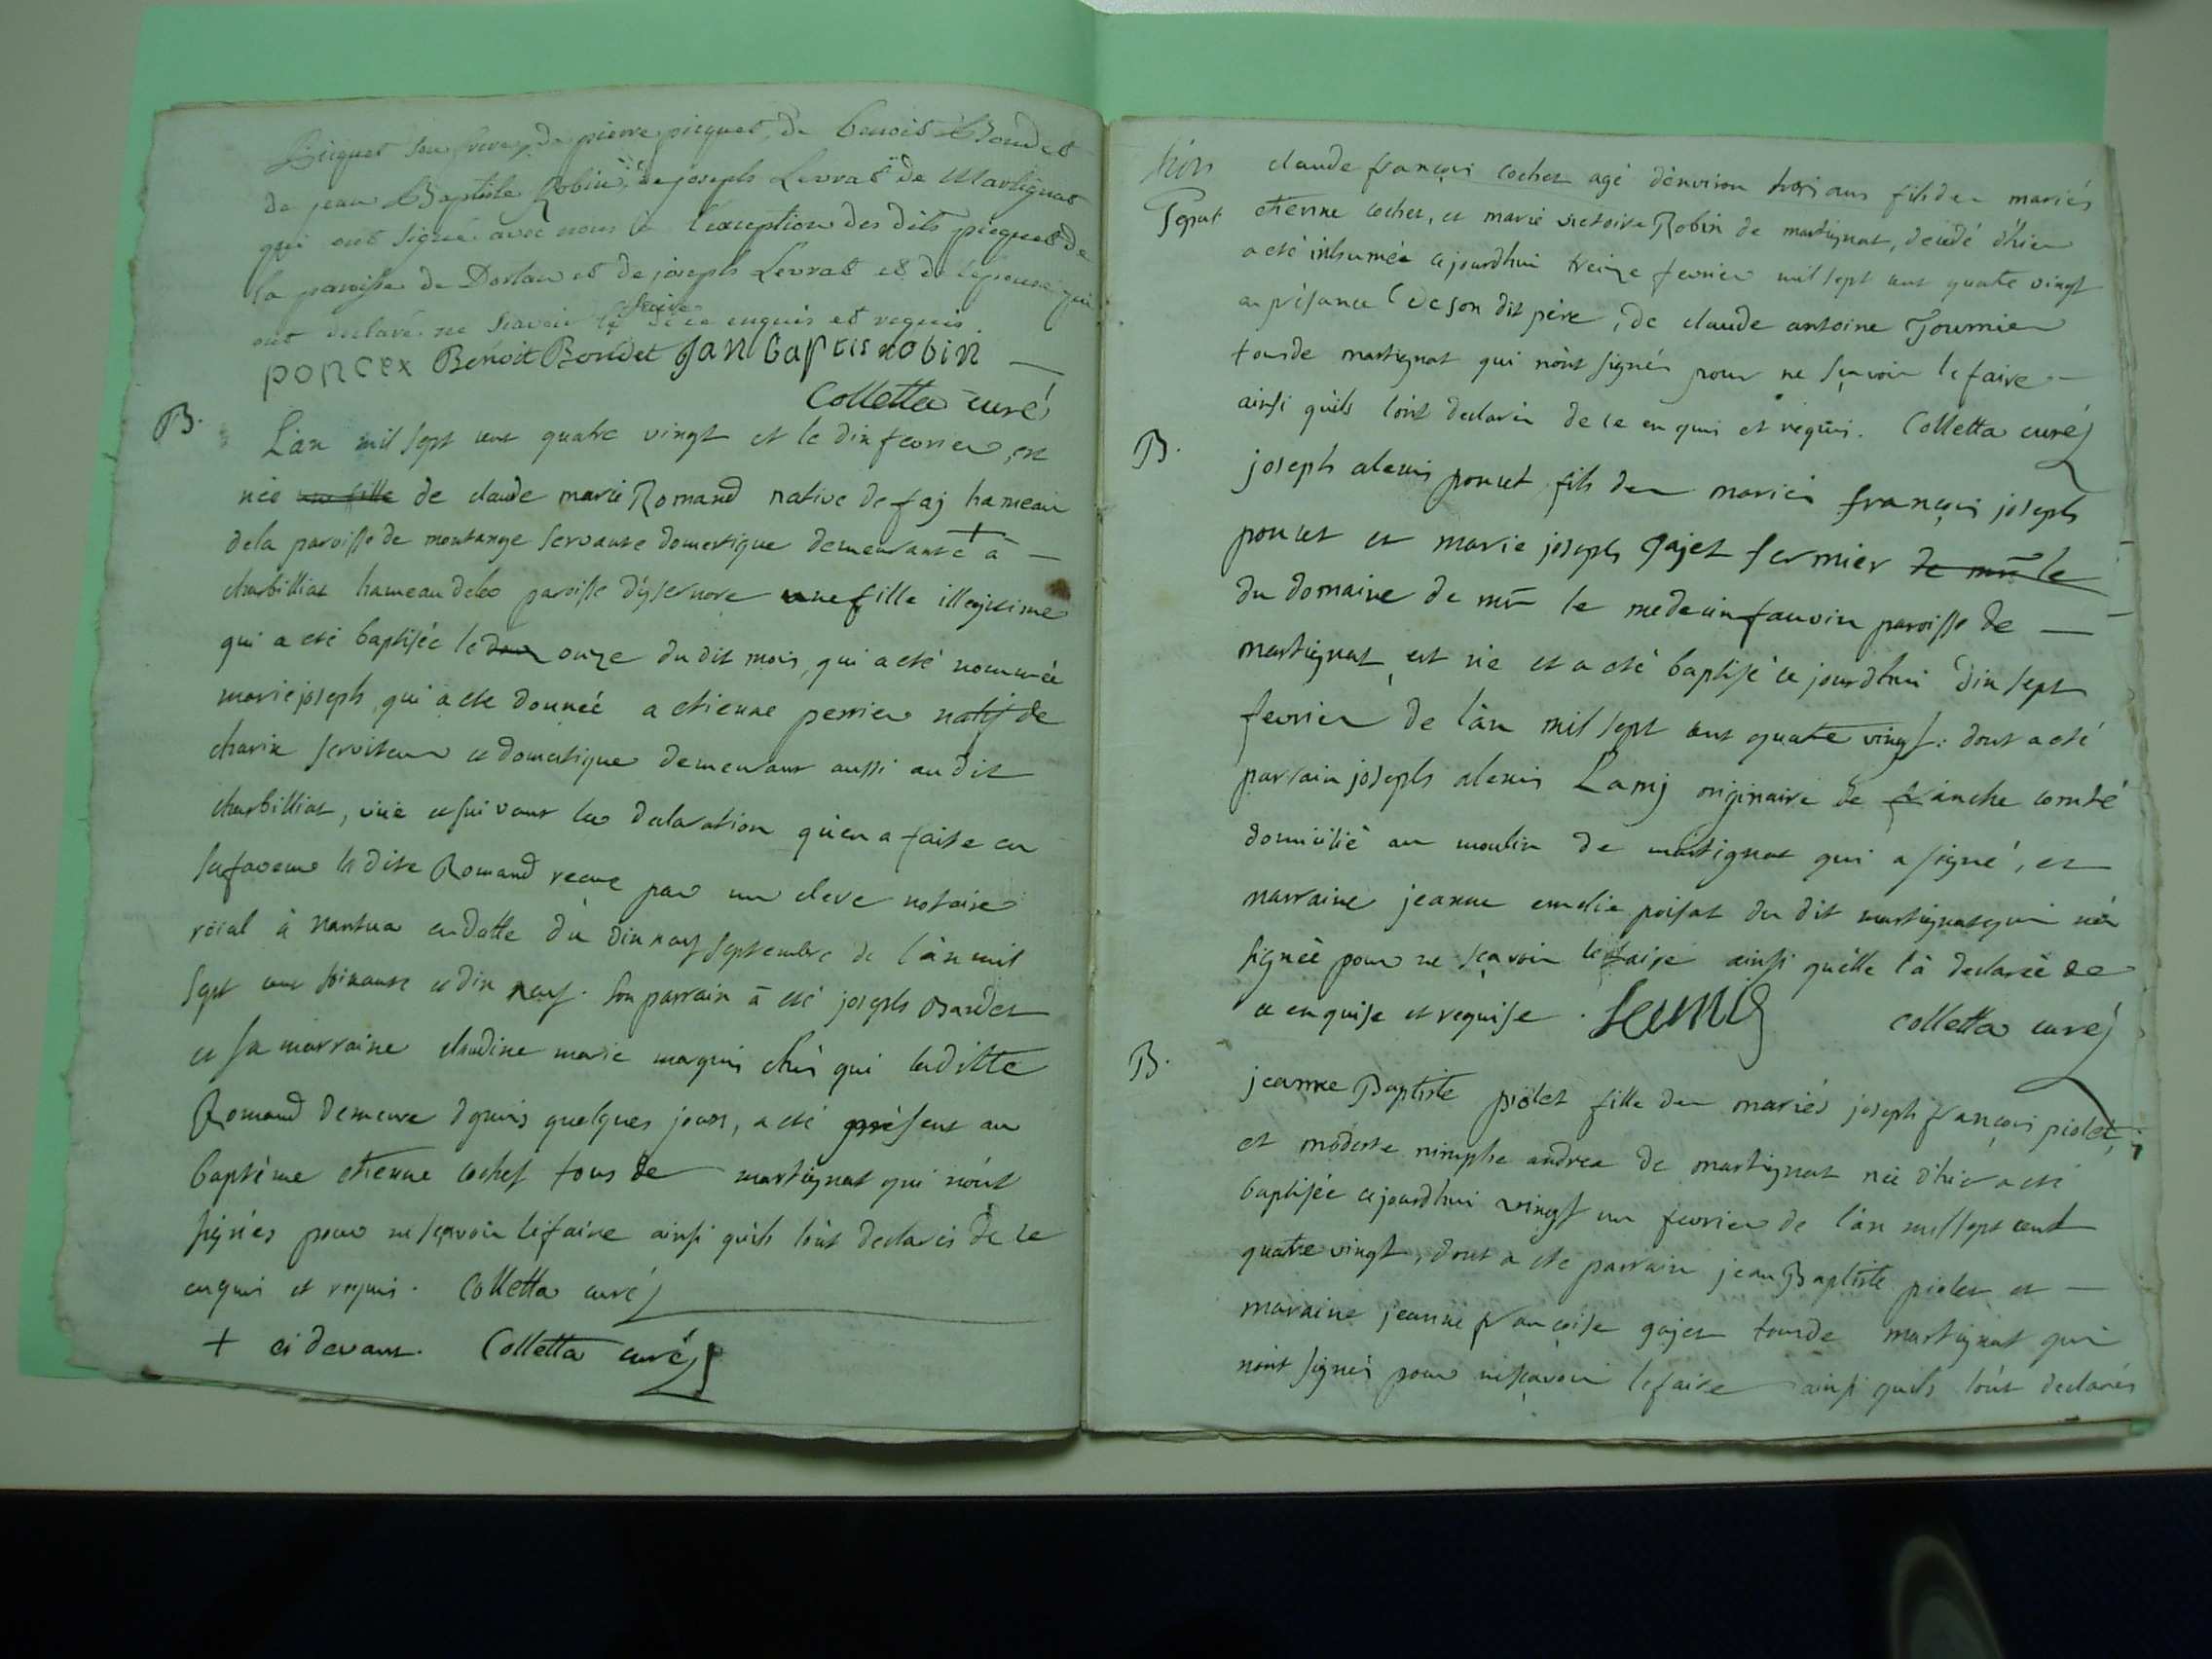 Picquet son frere, de pierre picquet, de benoit Bondet
de jean Baptiste Robin, de joseph Levrat de Martignat
qui ont signé avec nous à l'exception des dits picquet de
la paroisse de Dortan et de joseph Levrat et de l'epouse qui
ont declaré ne scavoir le faire de ce enquis et requis.
poncex Benoit Bondet Jan baptis robin
Colletta curé
B.
L'an mil sept cent quatre vingt et le dix fevrier, est
née une fille de claude marie Romand native de faj hameau
de la paroisse de montange servante domestique demeurante + à
charbilliat hameau de la paroisse d'ysernore une fille illegitime
qui a eté baptisée le onze du dit mois, qui a eté nommée
marie joseph, qui a eté donnée a etienne perrier natif de
charix serviteur et domestique demeurant aussi au dit
charbilliat, vüe et suivant la declaration qu'en a faite en
sa faveur la dite Romand recue par un eleve notaire
roial à nantua en datte du dix neuf septembre de l'an mil
sept cent soixante et dix neuf. son parrain à eté joseph Bardet
et sa marraine claudine marie maquis chés qui laditte
Romand demeure depuis quelques jours, a eté présent au
baptême etienne cochet tous de martignat qui n'ont
signés pour ne sçavoir le faire ainsi qu'ils l'ont declarés de ce
enquis et requis. Colletta curé
+ ci devant. Colletta curé
Sepult
claude françois cochet agé d'environ trois ans fils des mariés
etienne cochet, et marie victoire Robin de martignat, decedé d'hier
a eté inhumée ce jourdhui treize fevrier mil sept cent quatre vingt
en présance de son dit père, de claude antoine Tournier
tous de martignat qui n'ont signés pour ne sçavoir le faire
ainsi qu'ils l'ont declarés de ce enquis et requis. Colletta curé
B.
joseph alexis poncet fils des mariés françois joseph
poncet et marie joseph gajet fermier de mr le
du domaine de mr le medecin fauvin paroisse de
martignat, est né et a eté baptisé ce jourdhui dix sept
fevrier de l'an mil sept cent quatre vingt: dont a eté
parrain joseph alexis Lamj originaire de franche comté
domicilié au moulin de martignat qui a signé, et
marraine jeanne emelie poisat du dit martignat qui n'a
signée pour ne sçavoir le faire ainsi qu'elle l'à declarée de
ce enquise et requise. colletta curé
B.
jeanne Baptiste piolet fille des mariés joseph françois piolet,
et modeste nimphe andrea de martignat née d'hier a eté
baptisée ce jourdhui vingt un fevrier de l'an mil sept cent
quatre vingt, dont a eté parrain jean Baptiste piolet et
maraine jeanne françoise gajet tous de martignat qui
n'ont signés pour ne sçavoir le faire ainsi qu'ils l'ont declarés